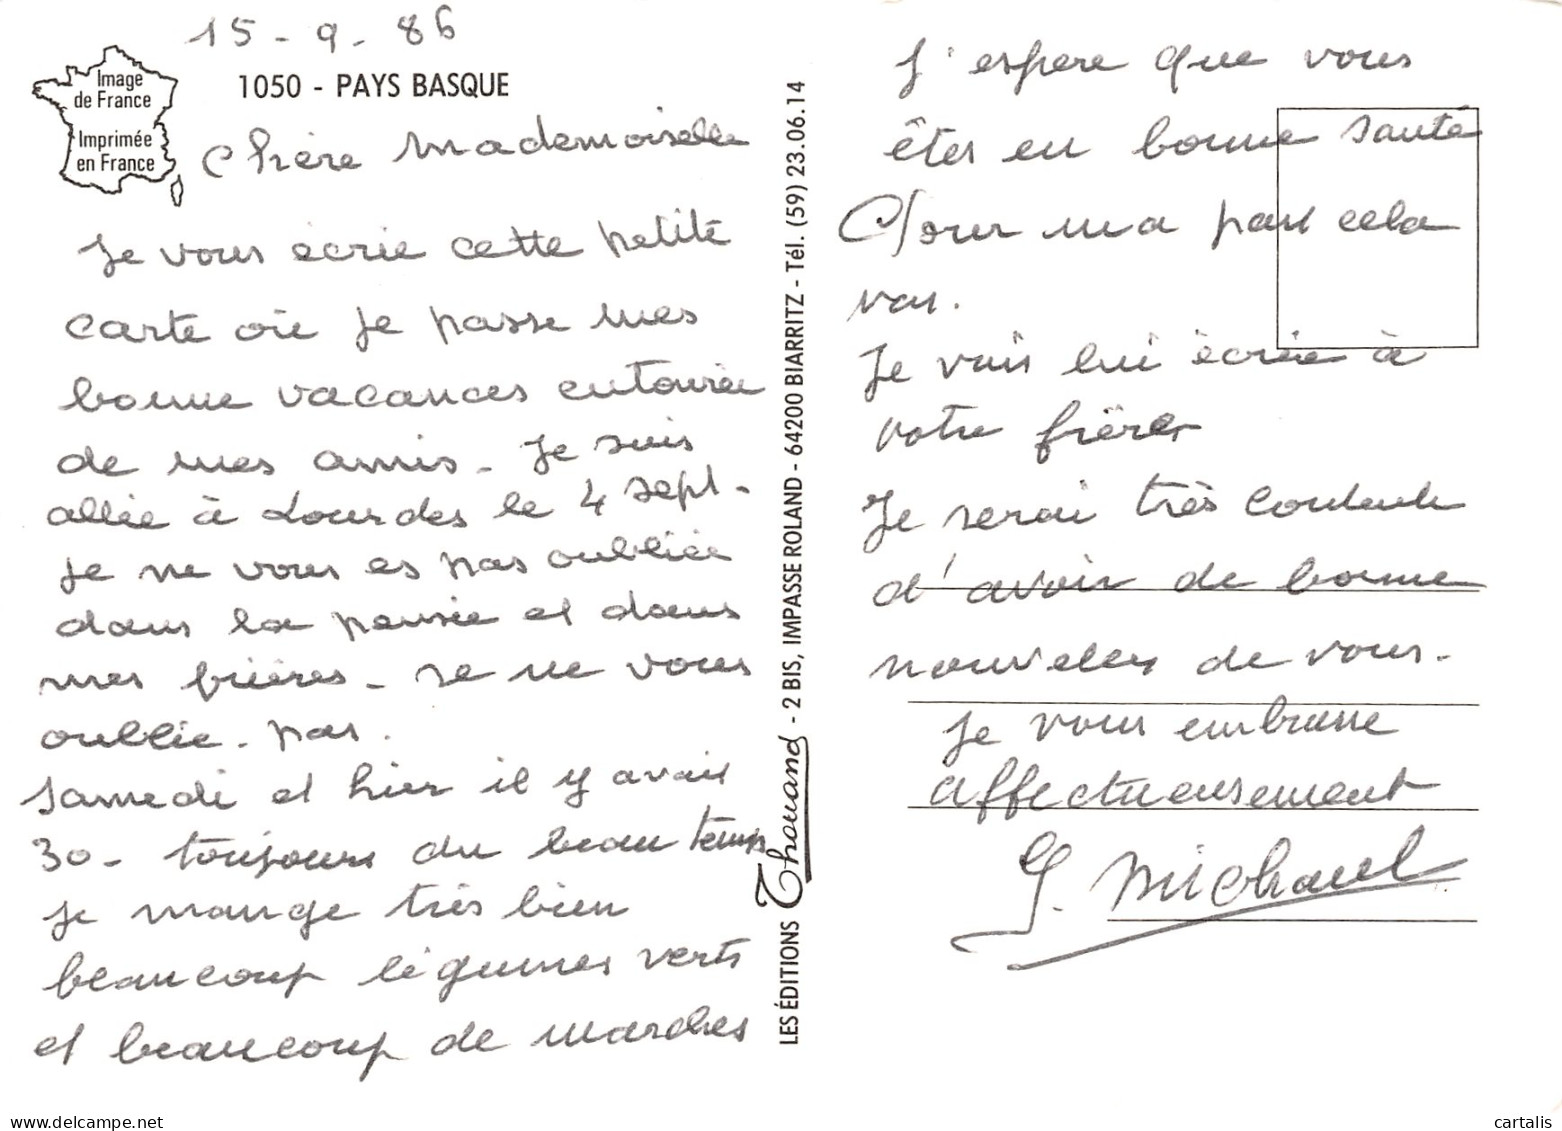 15-9-86
Image
de France
Imprimée
en France
1050 - PAYS BASQUE
Chère Mademoiselle
Je vous écrie cette petite
carte où je passe mes
bonne vacances entourée
de mes amis - Je suis
allée à Lourdes le 4 sept-
Je ne vous es pas oubliée
dans la pensée et dans
mes prières - Je ne vous
oublie - pas.
Samedi et hier il y avait
30 - toujours du beau temps
Je mange très bien
beaucoup légumes verts
et beaucoup de marches
LES ÉDITIONS Thouand - 2 BIS, IMPASSE ROLAND - 64200 BIARRITZ - Tél. (59) 23.06.14
J'espere que vous
êtes en bonne santé
Pour ma part cela
vas.
Je vais lui écrire à
votre frère
Je serai très contente
d'avoir de bonne
nouvelles de vous -
Je vous embrasse
affectueusement
G. Michaud
cartalis